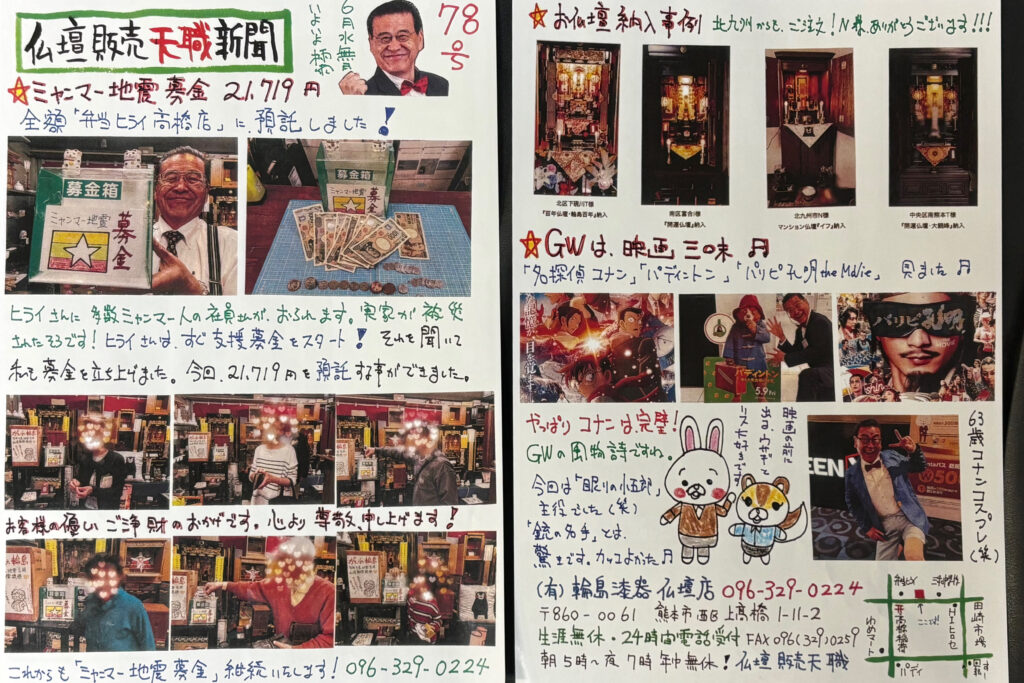 仏壇販売天職新聞
6月水無月
いよよ橋
78号
☆ミャンマー地震募金 21,719円
全額「弁当ヒライ高橋店」に、預託しました!
募金箱
ミャンマー地震
募金
募金箱
ミャンマー地震
募金
ヒライさんに多数ミャンマー人の社員さんが、おられます。実家が被災
されたそうです!ヒライさんは、すぐ支援募金をスタート!それを聞いて
私も募金を立ち上げました。今回、21,719円を預託す事ができました。
お客様の優しいご浄財のおかげです。心より尊敬、申し上げます!
これからも「ミャンマー地震募金」継続いたします! 096-329-0224
☆お仏壇納入事例 北九州からも、ご注文!N様、ありがとうございます!!!
北区下硯川T様
『百年仏壇・輪島百年』納入
南区富合I様
『開運仏壇』納入
北九州市N様
マンション仏壇『イフ』納入
中央区南熊本T様
『開運仏壇・大鶴峰』納入
☆GWは、映画三昧♬
「名探偵コナン」「パディントン」「パリピ孔明theMovie」 見ました♬
パディントン
5.9
パリピ孔明
やっぱりコナンは、完璧!
GWの風物詩ですね。
今回は「眠りの小五郎」
主役でした(笑)
「銃の名手」とは、
驚きです。カッコよかった♬
映画の前に
出る、ウサギと
リス大好きです
63歳コナンコスプレ(笑)
(有)輪島漆器仏壇店 096-329-0224
〒860-0061 熊本市西区上高橋1-11-2
生涯無休・24時間電話受付 FAX096(329)0259
朝5時~夜7時年中無休!仏壇販売天職
高橋稲荷
ここです
田崎市場
ゆめマート